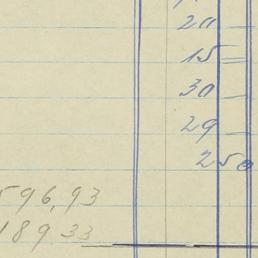 20
15 =
30 —
29 —
2 50
596,93
189 33